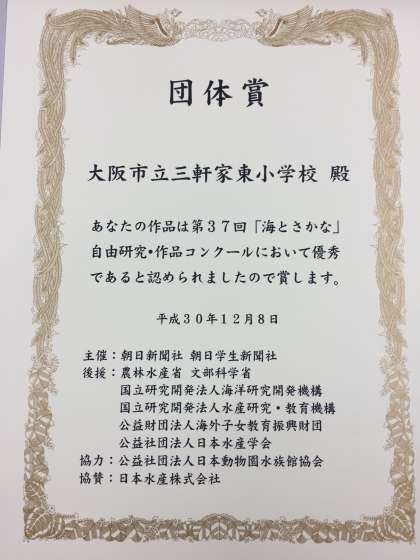 団体賞
大阪市立三軒家東小学校 殿
あなたの作品は第37回「海とさかな」
自由研究・作品コンクールにおいて優秀
であると認められましたので賞します。
平成30年12月8日
主催：朝日新聞社 朝日学生新聞社
後援：農林水産省 文部科学省
国立研究開発法人海洋研究開発機構
国立研究開発法人水産研究・教育機構
公益財団法人海外子女教育振興財団
公益社団法人日本水産学会
協力：公益社団法人日本動物園水族館協会
協賛：日本水産株式会社